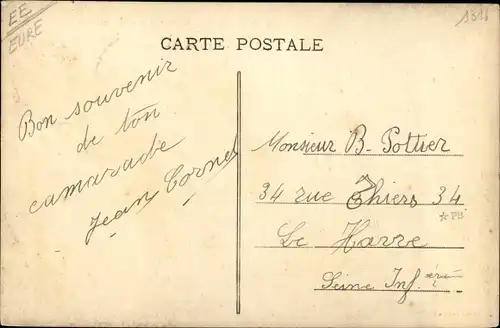 EE
EURE
1316
CARTE POSTALE
Bon souvenir
de ton
camarade
Jean Cornel
Monsieur B. Pottier
34 rue Thiers 34
* PB
Le Havre
Seine Inf.érie